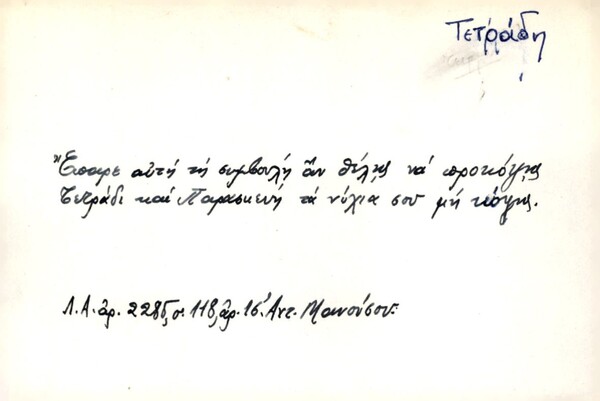 Τετράδη
Ἔπαρε αὐτή τή συμβουλή ἄν θέλῃς νά προκόψῃς
Τετράδι καί Παρασκευή τά νύχια σου μή κόψῃς.
Λ.Α. ἀρ. 2285, σ. 118, ἀρ. 16 Ἀντ. Μανούσου